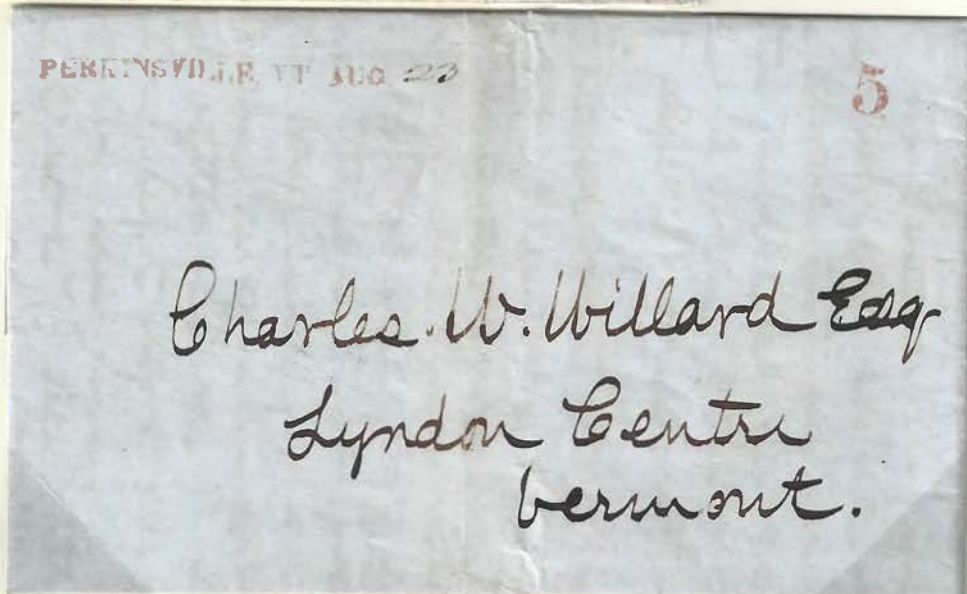 PERKINSVILLE VT AUG 23
5
Charles. W. Willard Esq
Lyndon Centre
Vermont.